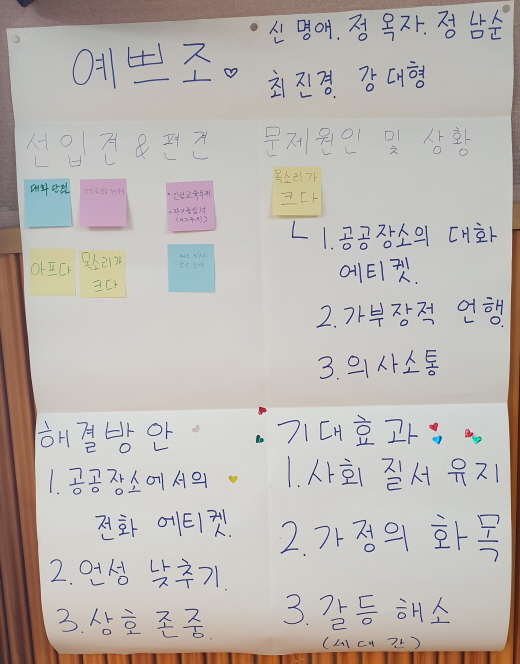 예쁘조
신명애. 정옥자. 정남순
최진경. 강대형
선입견 & 편견
대화 단절
아프다
목소리가
크다
문제원인 및 상황
목소리가
크다
1. 공공장소의 대화
에티켓.
2. 가부장적 언행.
3. 의사소통
해결방안
1. 공공장소에서의
전화 에티켓.
2. 언성 낮추기.
3. 상호 존중.
기대효과
1. 사회 질서 유지
2. 가정의 화목
3. 갈등 해소
(세대 간)